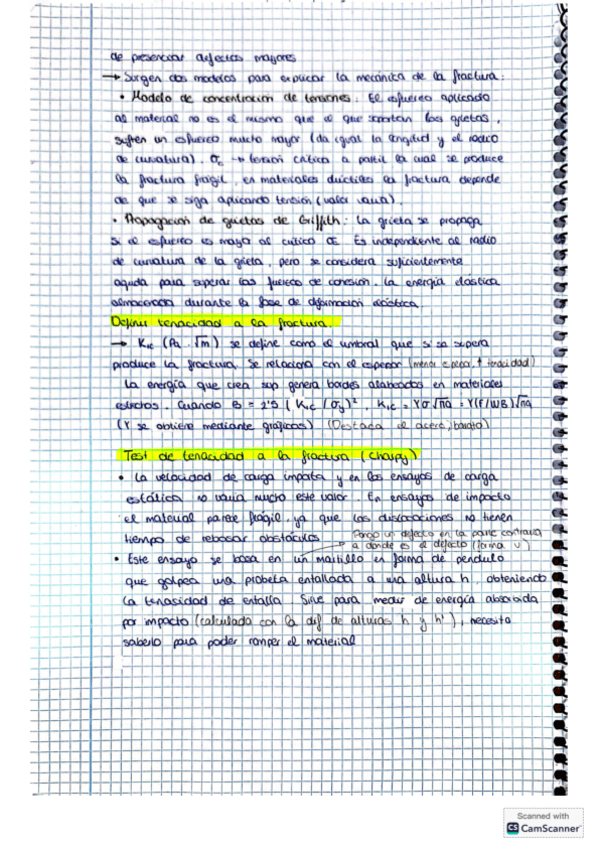 de presenciar defectos mayores
→ Surgen dos modelos para explicar la mecánica de la fractura:
• Modelo de concentración de tensiones. El esfuerzo aplicado
al material no es el mismo que el que soportan las grietas,
sufren un esfuerzo mucho mayor (da igual la longitud y el radio
de curvatura). σc → tensión crítica a partir la cual se produce
la fractura frágil, en materiales dúctiles la fractura depende
de que se siga aplicando tensión (valor varia).
• Propagación de grietas de Griffith: La grieta se propaga
si el esfuerzo es mayor al crítico σc. Es independiente al radio
de curvatura de la grieta, pero se considera suficientemente
aguda para superar las fuerzas de cohesión. La energía elástica
almacenada durante la fase de deformación elástica.
Definir tenacidad a la fractura.
→ K_IC (Pa · √m) se define como el umbral que si sa supera
produce la fractura, se relaciona con el espesor (menor espesor, ↑ tenacidad)
La energía que crea sup genera bordes alabeados en materiales
estrechos. Cuando B = 2'5 (K_IC / σy)², K_IC = Yσ√πa = Y(F/WB)√πa
(Y se obtiene mediante gráficos) (Destaca el acero, barato)
Test de tenacidad a la fractura (Charpy)
• La velocidad de carga importa y en los ensayos de carga
estática no varía mucho este valor. En ensayos de impacto
el material parece frágil, ya que las dislocaciones no tienen
tiempo de rebosar obstáculos
Pongo un defecto en la parte contraria
a donde es el defecto (forma v)
• Este ensayo se basa en un martillo en forma de péndulo
que golpea una probeta entallada a una altura h, obteniendo
la tenasidad de entalla. Sirve para medir de energía absorbida
por impacto (calculada con la dif de alturas h y h'), necesito
saberlo para poder romper el material
Scanned with
CS CamScanner